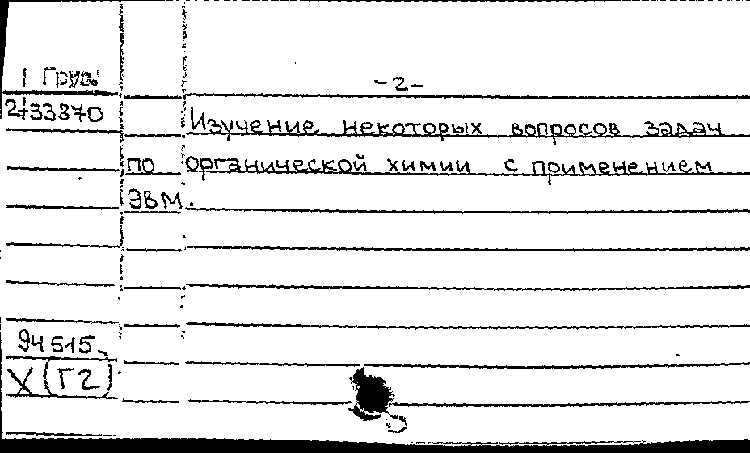 1 Груз.
-2-
2/33870
Изучение некоторых вопросов задач
по органической химии с применением
ЭВМ.
94515
X(Г2)